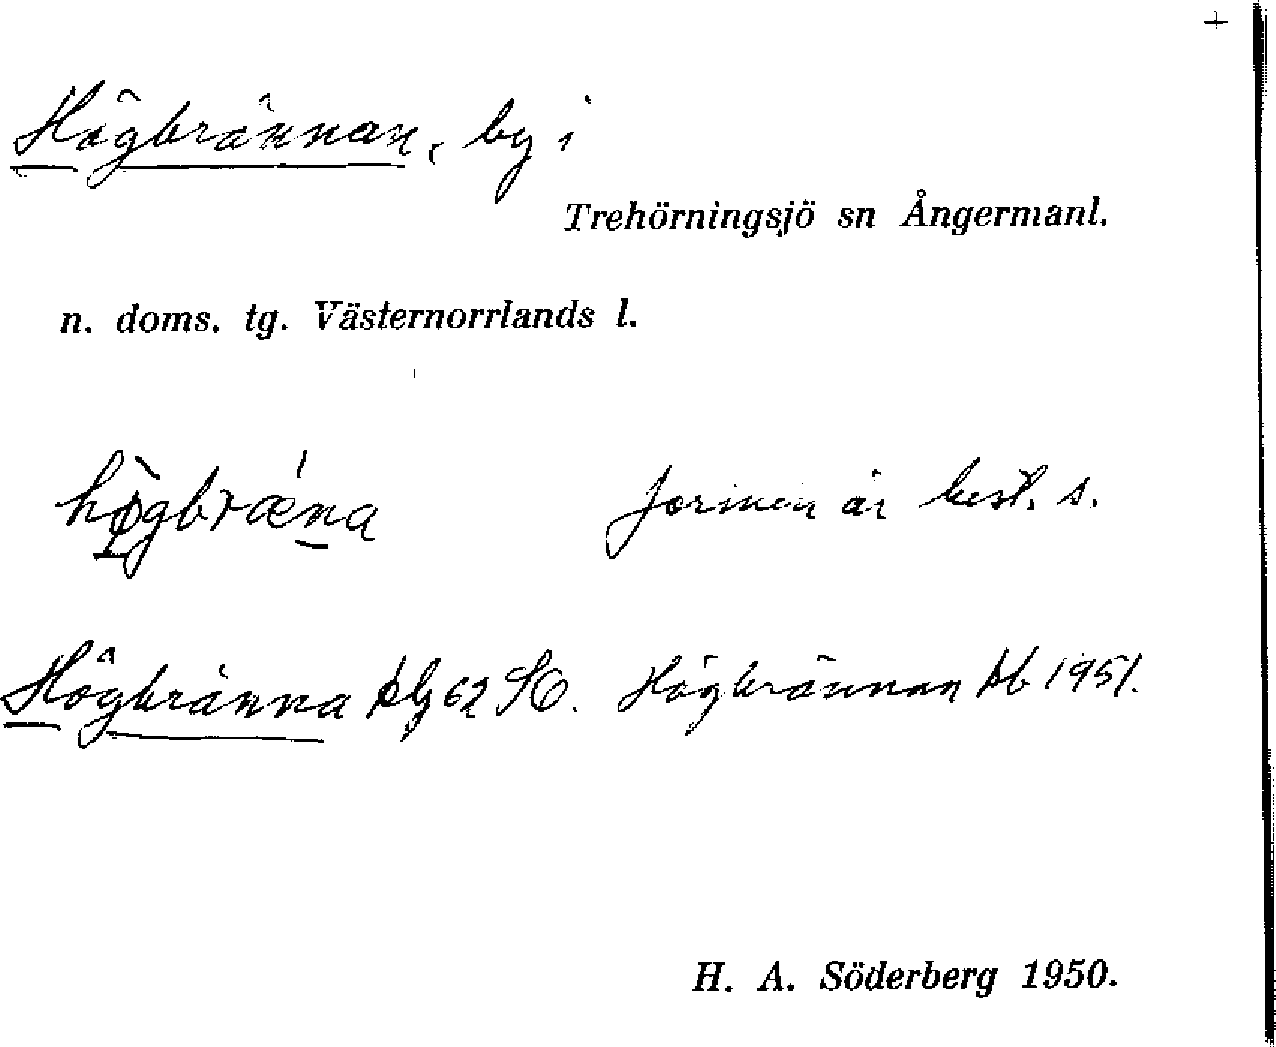 +
Högbrännan, by i
Trehörningsjö sn Ångermanl.
n. doms. tg. Västernorrlands l.
hø̀gbrǽna formen är best. s.
Högbränna klg 62 SO. Högbrännan kb 1951.
H. A. Söderberg 1950.